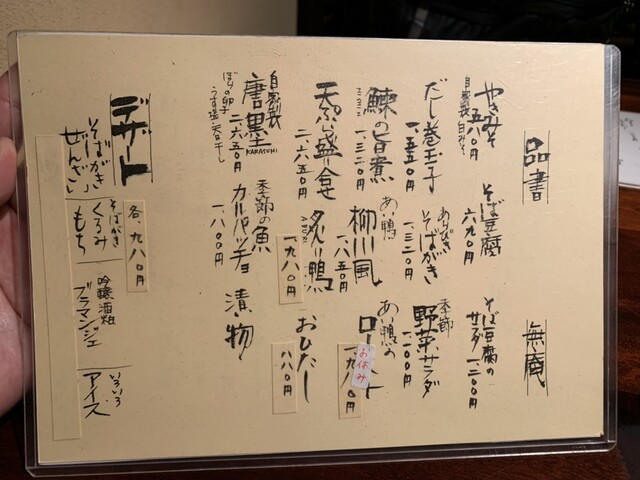 品書
無庵
やきみそ
自家製白みそ
五八〇円
そば豆腐
六九〇円
そば豆腐の
サラダ
一二〇〇円
だし巻玉子
一、一五〇円
あらびき
そばがき
一、三二〇円
季節
野菜サラダ
一、一〇〇円
鰊の旨煮
NISHIN
一、三二〇円
あい鴨
柳川風
一、八五〇円
あい鴨の
ロースト
お休み
一、九八〇円
天ぷら盛合せ
二、六五〇円
炙り鴨
ABURI
一、九八〇円
おひたし
八八〇円
自家製
唐墨
KARASUMI
ぼらの卵子
うす塩・天日干し
二、六五〇円
季節の魚
カルパッチョ
一、八〇〇円
漬物
デザート
各 九八〇円
そばがき
ぜんざい
そばがき
くるみ
もち
吟醸酒粕
ブラマンジェ
いろいろ
アイス